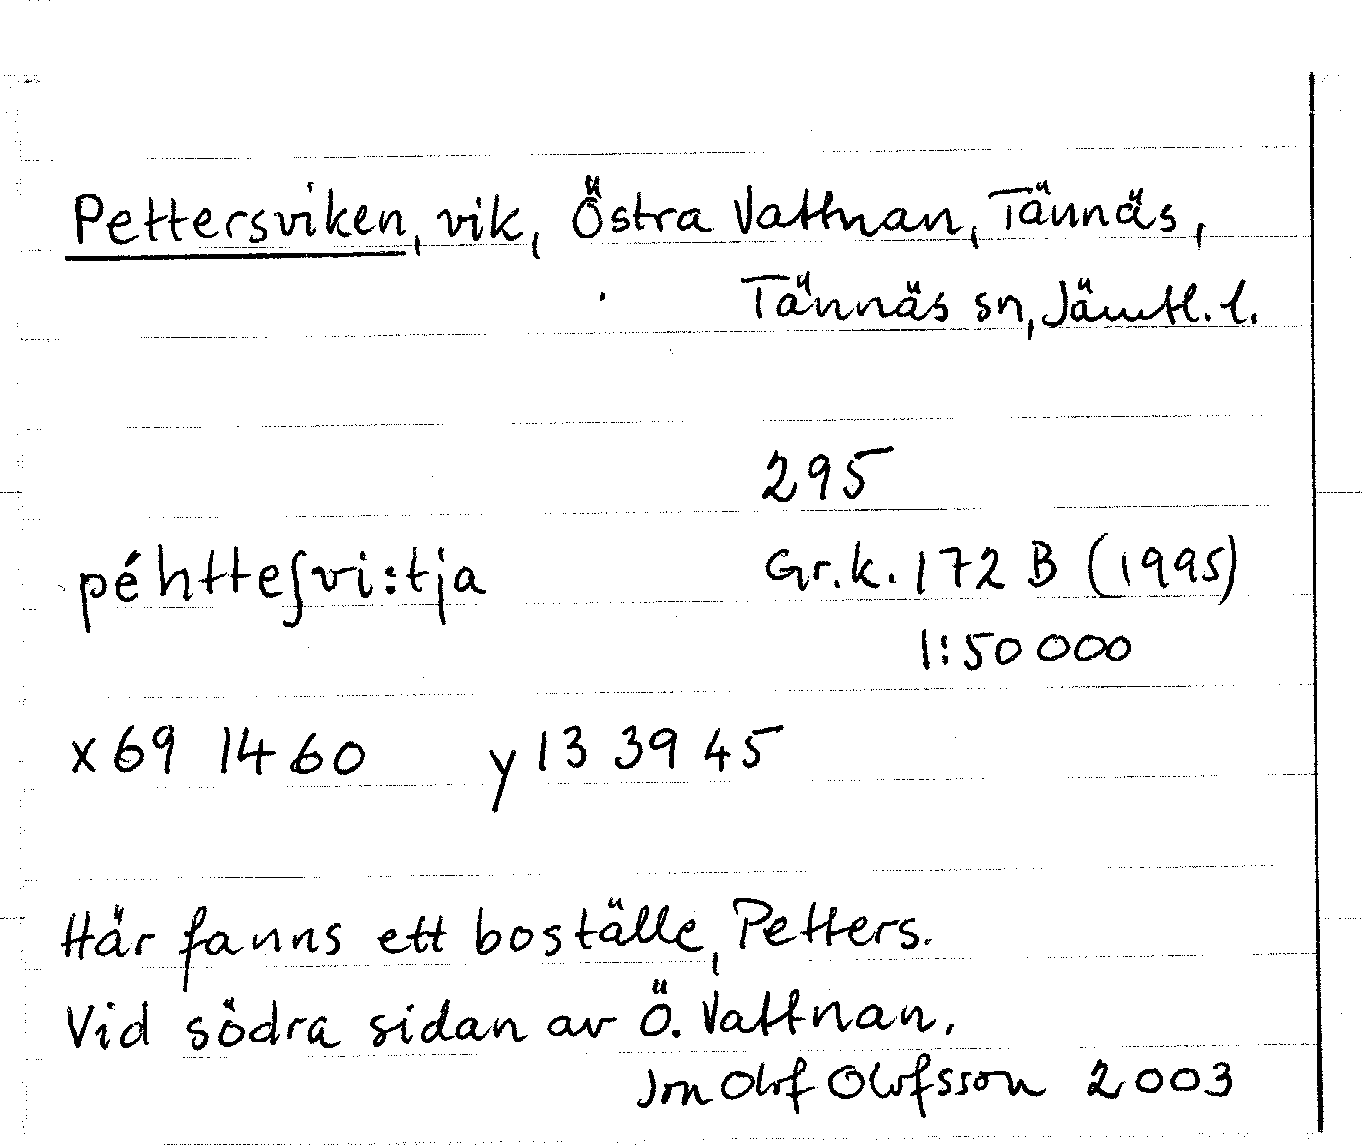 Pettersviken, vik, Östra Vattnan, Tännäs,
Tännäs sn, Jämtl. l.
295
péhtteʃvi:tja Gr.k. 172 B (1995)
1:50 000
x 69 14 60 y 13 39 45
Här fanns ett boställe, Petters.
Vid södra sidan av Ö. Vattnan.
Jon Olof Olofsson 2003